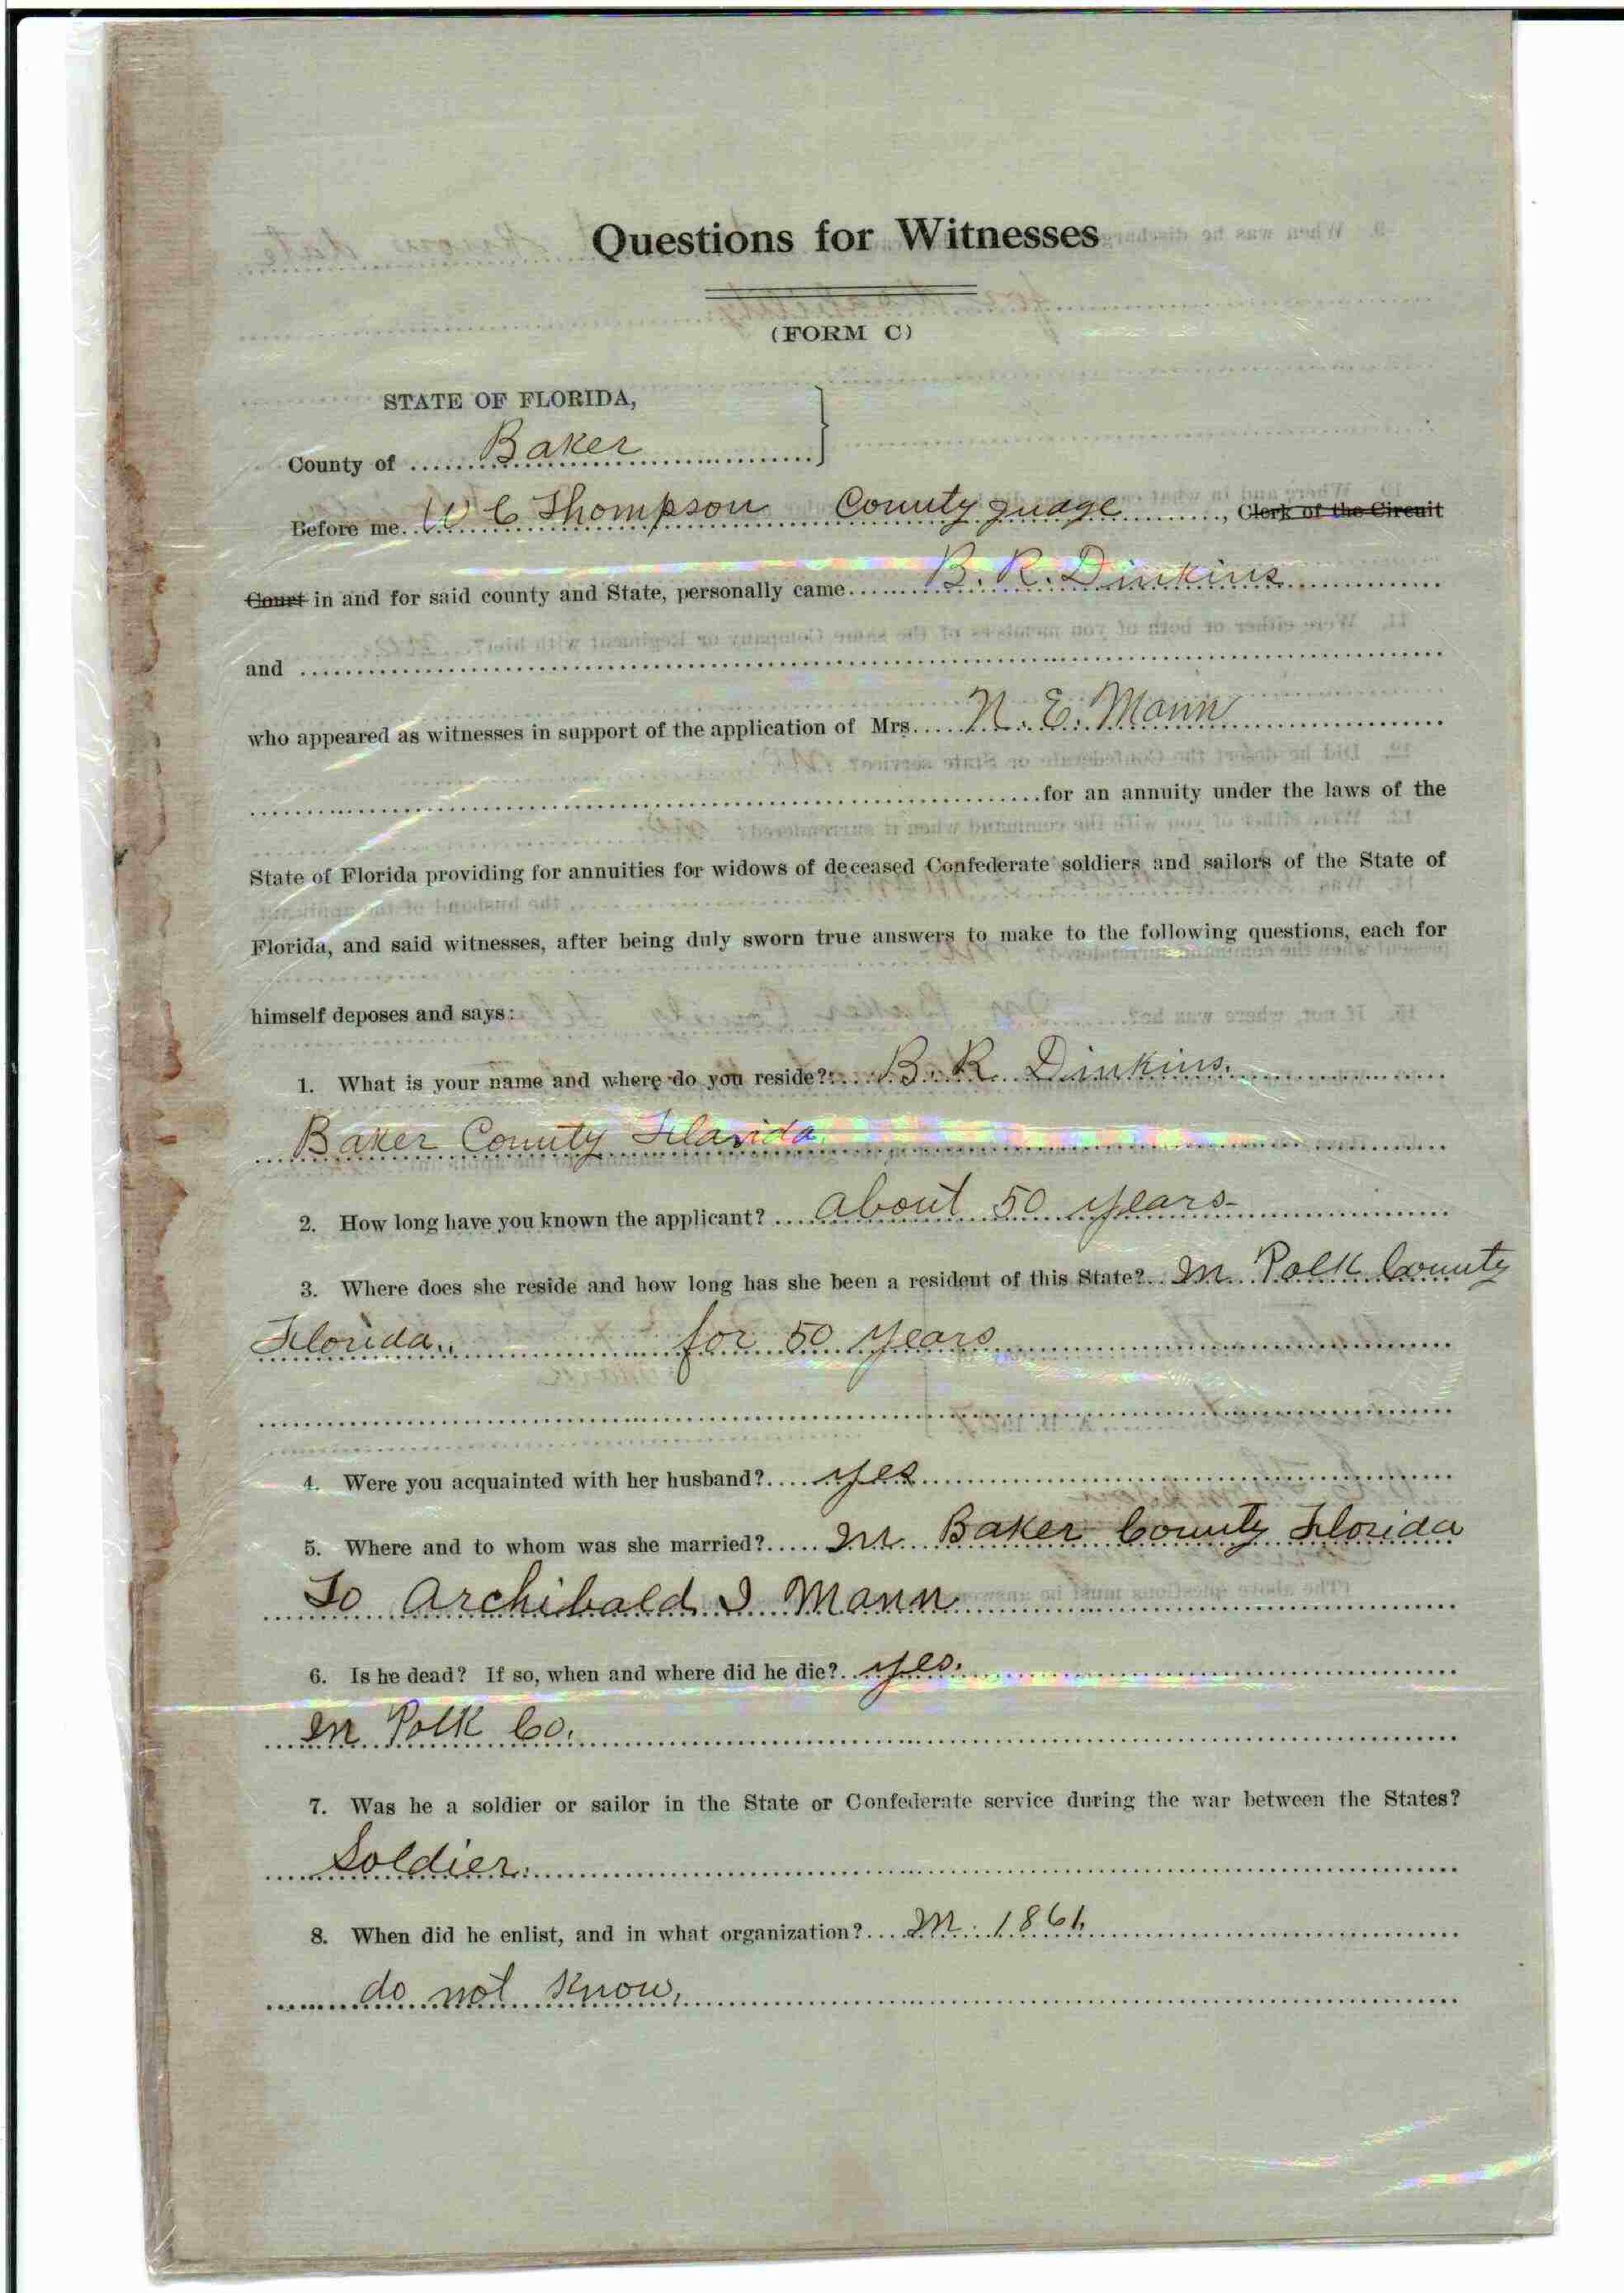 Questions for Witnesses
(FORM C)
STATE OF FLORIDA,
County of Baker
Before me W C Thompson County Judge, Clerk of the Circuit
Court in and for said county and State, personally came B. R. Dinkins
and
who appeared as witnesses in support of the application of Mrs. N. E. Mann
for an annuity under the laws of the
State of Florida providing for annuities for widows of deceased Confederate soldiers and sailors of the State of
Florida, and said witnesses, after being duly sworn true answers to make to the following questions, each for
himself deposes and says:
1. What is your name and where do you reside? B. R. Dinkins.
Baker County Florida.
2. How long have you known the applicant? about 50 years
3. Where does she reside and how long has she been a resident of this State? In Polk County
Florida. for 50 years
4. Were you acquainted with her husband? yes
5. Where and to whom was she married? In Baker County Florida
To Archibald I Mann
6. Is he dead? If so, when and where did he die? yes.
In Polk Co.
7. Was he a soldier or sailor in the State or Confederate service during the war between the States?
Soldier.
8. When did he enlist, and in what organization? In 1861.
do not know.